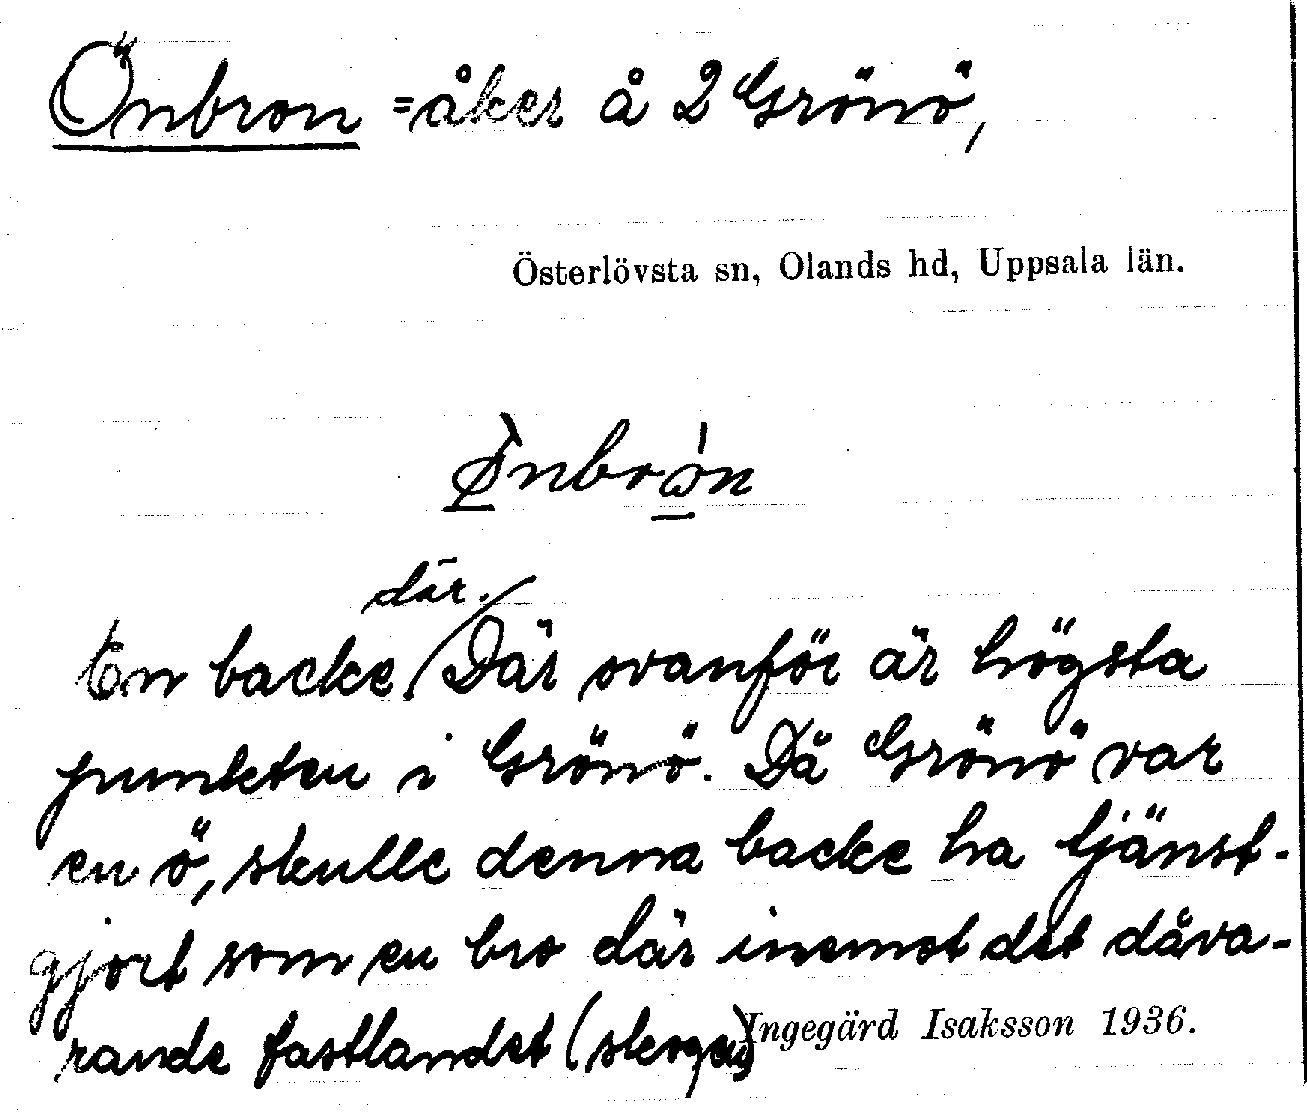 Önbron = åker å 2 Grönö,
Österlövsta sn, Olands hd, Uppsala län.
Ø̀nbrω̍n
där.
En backe / Där ovanför är högsta
punkten i Grönö. Då Grönö var
en ö, skulle denna backe ha tjänst-
gjort som en bro där inemot det dåva-
rande fastlandet (skogen)
Ingegärd Isaksson 1936.